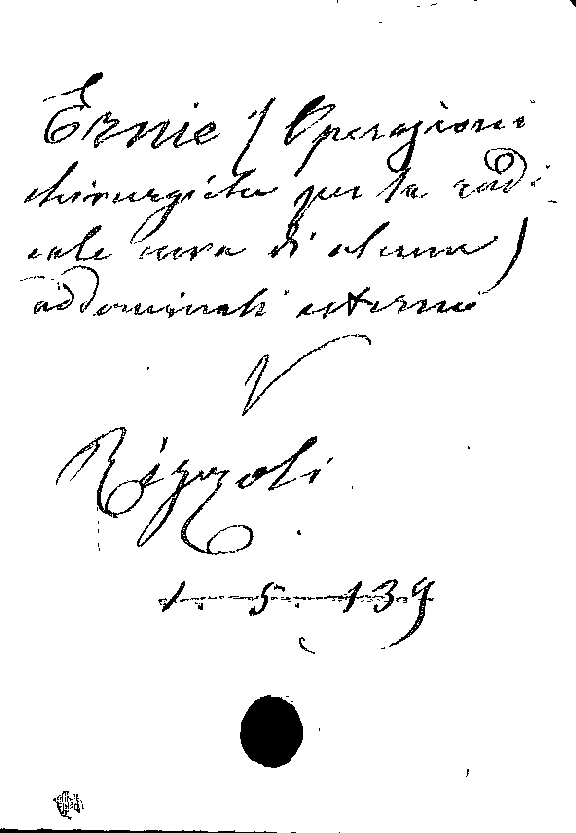 Ernie (Operazioni
chirurgiche per la radi-
cale cura di alcune)
addominali esterne
V
Rizzoli
1. 5. 139